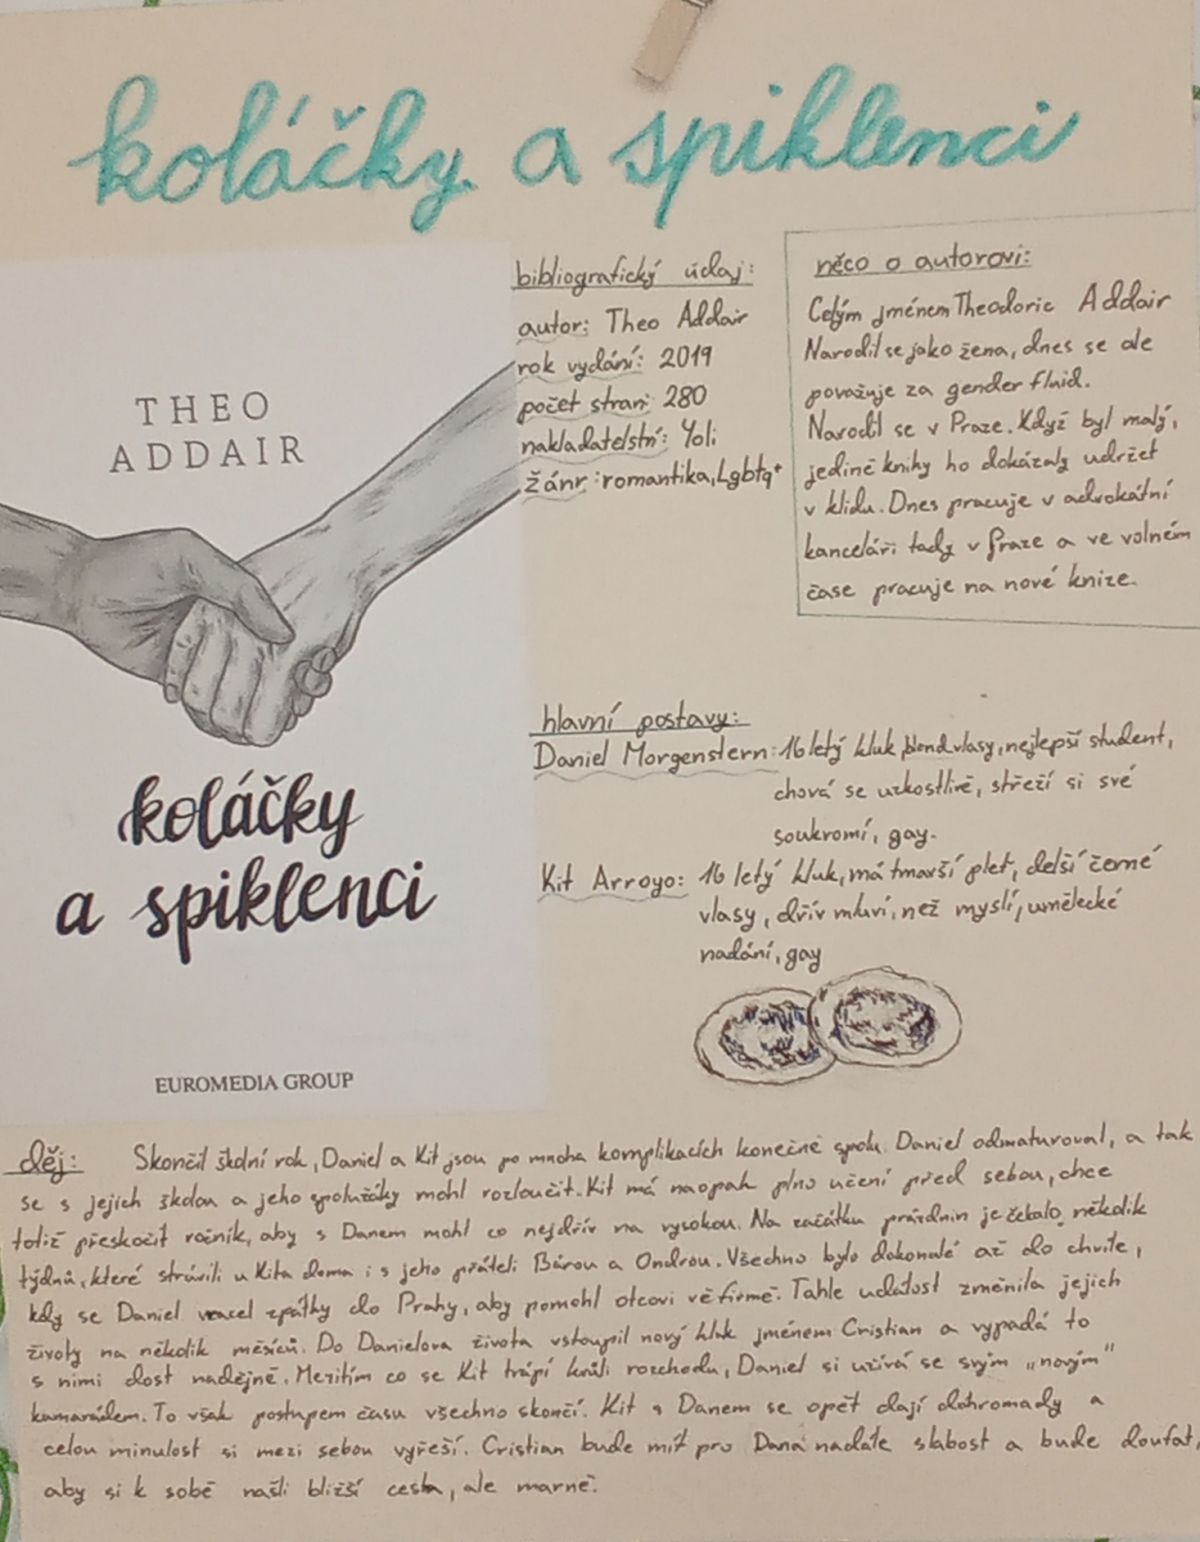 koláčky a spiklenci
THEO
ADDAIR
koláčky
a spiklenci
EUROMEDIA GROUP
bibliografický údaj:
autor: Theo Addair
rok vydání: 2019
počet stran: 280
nakladatelství: Yoli
žánr: romantika, Lgbtq+
něco o autorovi:
Celým jménem Theodoric Addair
Narodil se jako žena, dnes se ale
považuje za gender fluid.
Narodil se v Praze. Když byl malý,
jedině knihy ho dokázaly udržet
v klidu. Dnes pracuje v advokátní
kanceláři tady v Praze a ve volném
čase pracuje na nové knize.
hlavní postavy:
Daniel Morgenstern: 16 letý kluk, blond vlasy, nejlepší student,
chová se úzkostlivě, střeží si své
soukromí, gay.
Kit Arroyo: 16 letý kluk, má tmavší pleť, delší černé
vlasy, dřív mluví, než myslí, umělecké
nadání, gay
děj: Skončil školní rok, Daniel a Kit jsou po mnoha komplikacích konečně spolu. Daniel odmaturoval, a tak
se s jejich školou a jeho spolužáky mohl rozloučit. Kit má naopak plno učení před sebou, chce
totiž přeskočit ročník, aby s Danem mohl co nejdřív na vysokou. Na začátku prázdnin je čekalo několik
týdnů, které strávili u Kita doma i s jeho přáteli Bárou a Ondrou. Všechno bylo dokonalé až do chvíle,
kdy se Daniel vracel zpátky do Prahy, aby pomohl otcovi ve firmě. Tahle událost změnila jejich
životy na několik měsíců. Do Danielova života vstoupil nový kluk jménem Cristian a vypadá to
s nimi dost nadějně. Mezitím co se Kit trápí kvůli rozchodu, Daniel si užívá se svým „novým“
kamarádem. To však postupem času všechno skončí. Kit s Danem se opět dají dohromady a
celou minulost si mezi sebou vyřeší. Cristian bude mít pro Dana nadále slabost a bude doufat,
aby si k sobě našli bližší cestu, ale marně.